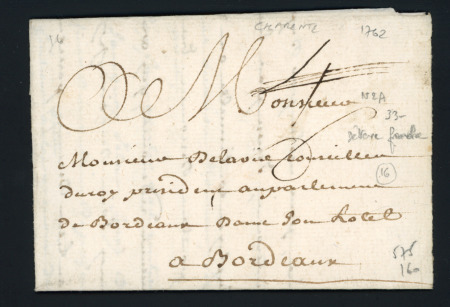 CHARENTE
1762
14
Monsieur
N2A
33-
Monsieur Delavie Conseiller
du roy president auparlement
de Bordeaux Dans son hotel
16
a Bordeaux
575
160